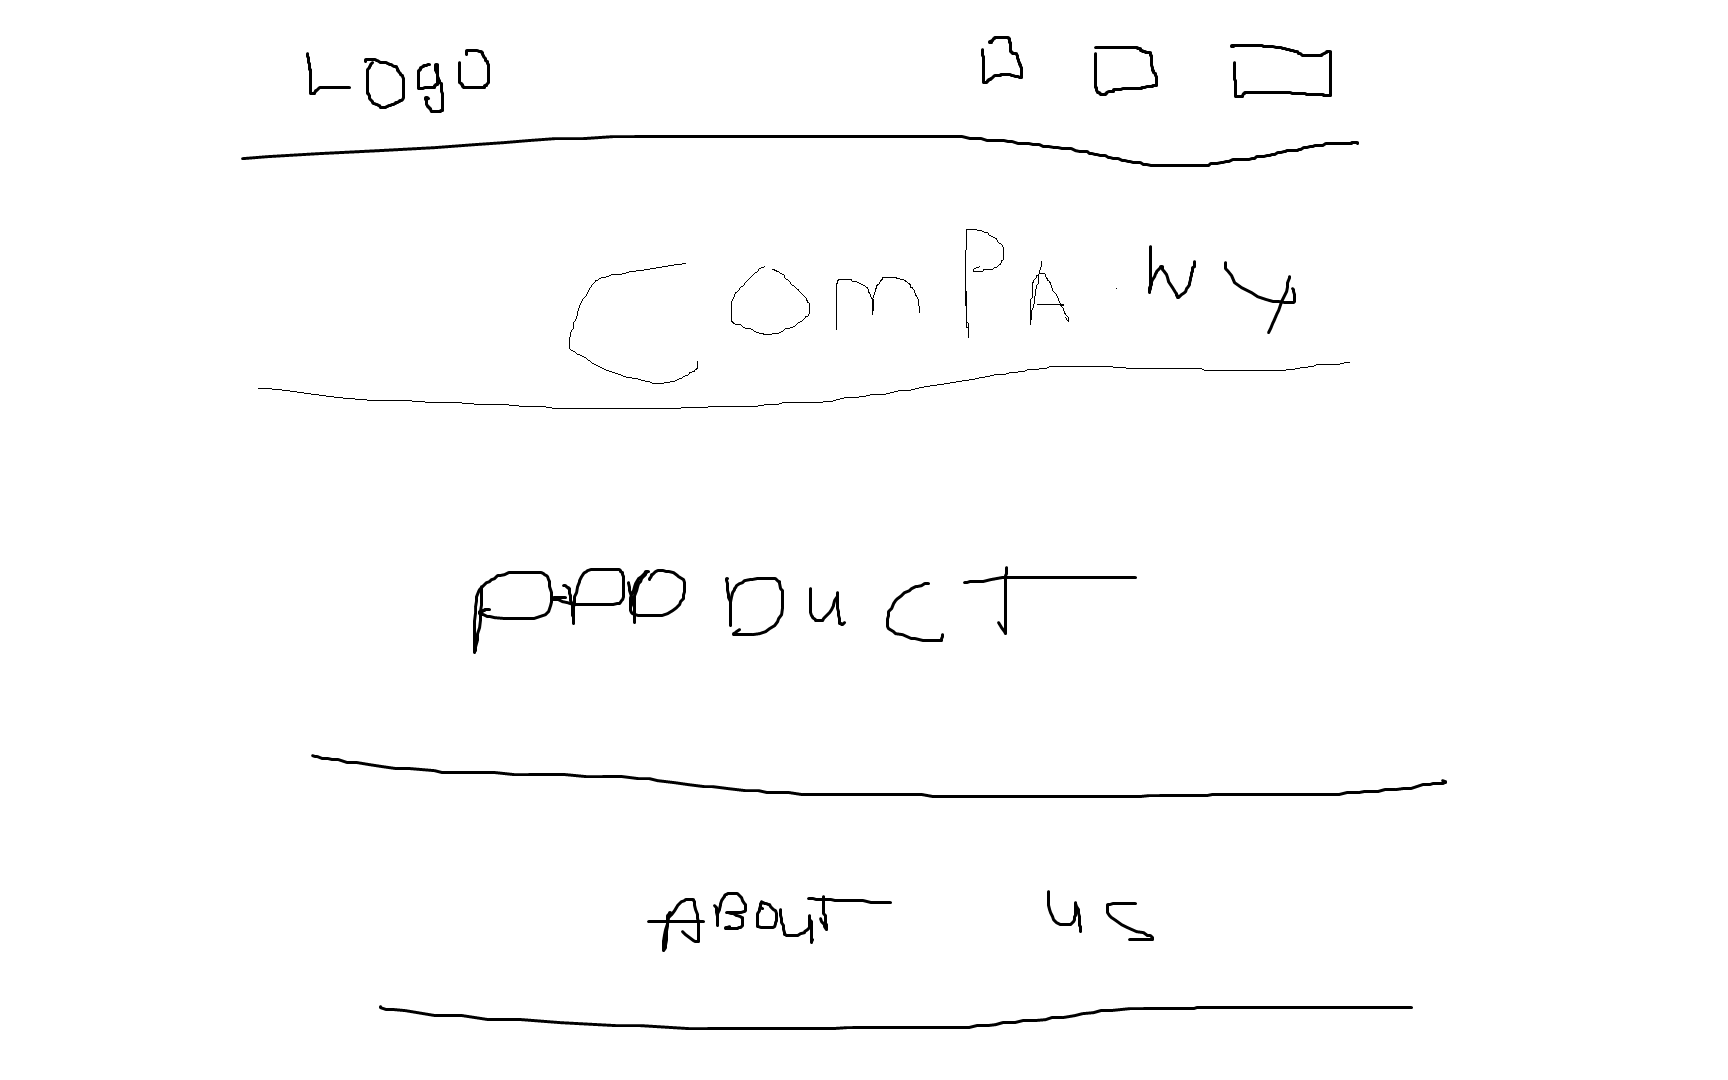 Logo
COMPANY
PRODUCT
ABOUT US